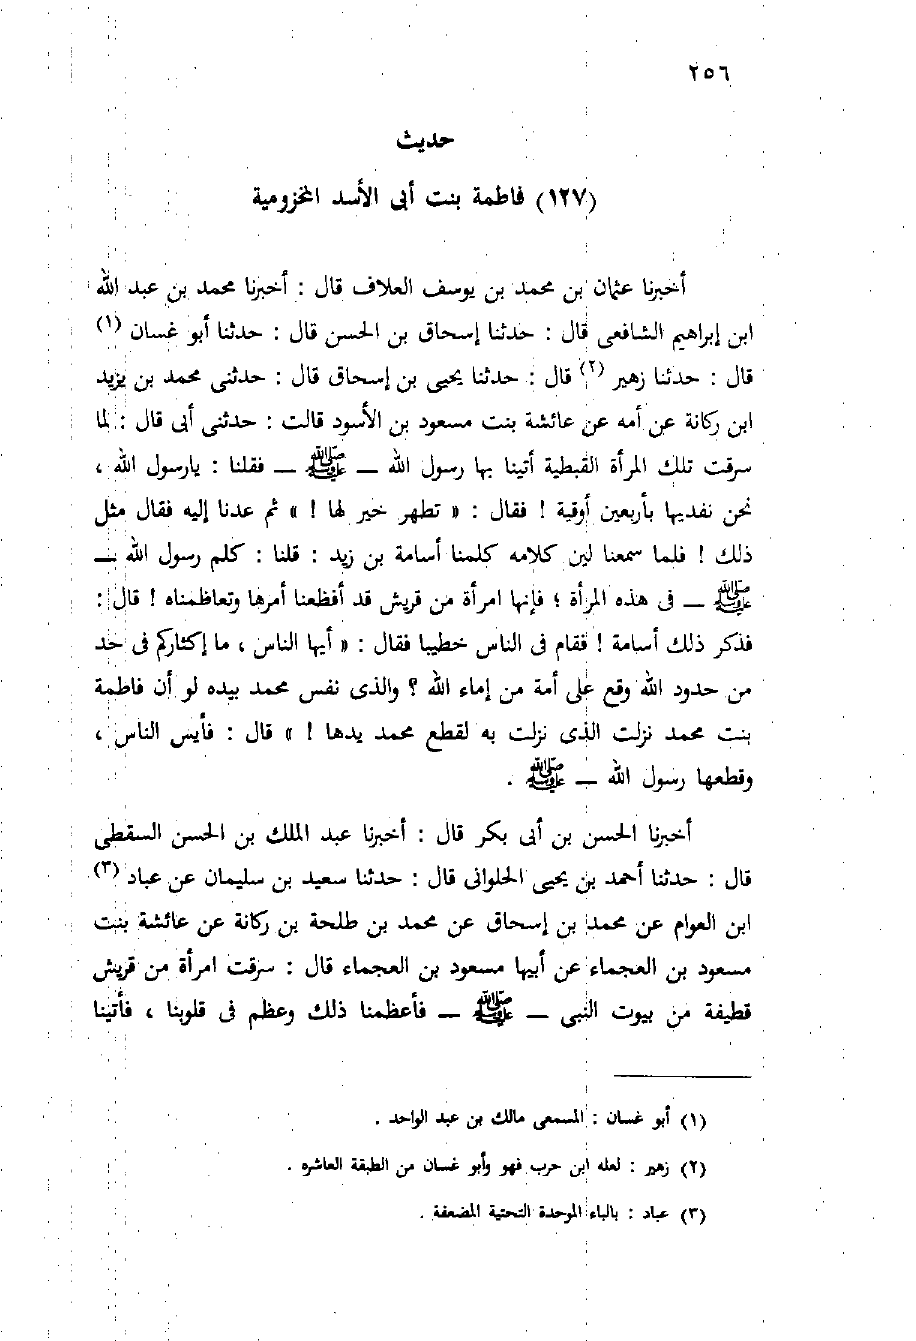 ٢٥٦
حديث
(١٢٧) فاطمة بنت أبى الأسد المخزومية
أخبرنا عثمان بن محمد بن يوسف العلاف قال : أخبرنا محمد بن عبد الله
ابن إبراهيم الشافعى قال : حدثنا إسحاق بن الحسن قال : حدثنا أبو غسان (١)
قال : حدثنا زهير (٢) قال : حدثنا يحيى بن إسحاق قال : حدثنى محمد بن يزيد
ابن ركانة عن أمه عن عائشة بنت مسعود بن الأسود قالت : حدثنى أبى قال : لما
سرقت تلك المرأة القبطية أتينا بها رسول الله ــ ﷺ ــ فقلنا : يارسول الله ،
نحن نفديها بأربعين أوقية ! فقال : « تطهر خير لها ! » ثم عدنا إليه فقال مثل
ذلك ! فلما سمعنا لين كلامه كلمنا أسامة بن زيد : قلنا : كلم رسول الله ــ
ﷺ ــ فى هذه المرأة ؛ فإنها امرأة من قريش قد أفظعنا أمرها وتعاظمناه ! قال :
فذكر ذلك أسامة ! فقام فى الناس خطيبا فقال : « أيها الناس ، ما إكثاركم فى حد
من حدود الله وقع على أمة من إماء الله ؟ والذى نفس محمد بيده لو أن فاطمة
بنت محمد نزلت الذى نزلت به لقطع محمد يدها ! » قال : فأيس الناس ،
وقطعها رسول الله ــ ﷺ .
أخبرنا الحسن بن أبى بكر قال : أخبرنا عبد الملك بن الحسن السقطى
قال : حدثنا أحمد بن يحيى الحلوانى قال : حدثنا سعيد بن سليمان عن عباد (٣)
ابن العوام عن محمد بن إسحاق عن محمد بن طلحة بن ركانة عن عائشة بنت
مسعود بن العجماء عن أبيها مسعود بن العجماء قال : سرقت امرأة من قريش
قطيفة من بيوت النبى ــ ﷺ ــ فأعظمنا ذلك وعظم فى قلوبنا ، فأتينا
(١) أبو غسان : المسمعى مالك بن عبد الواحد .
(٢) زهير : لعله ابن حرب فهو وأبو غسان من الطبقة العاشره .
(٣) عباد : بالباء الموحدة التحتية المضعفة .